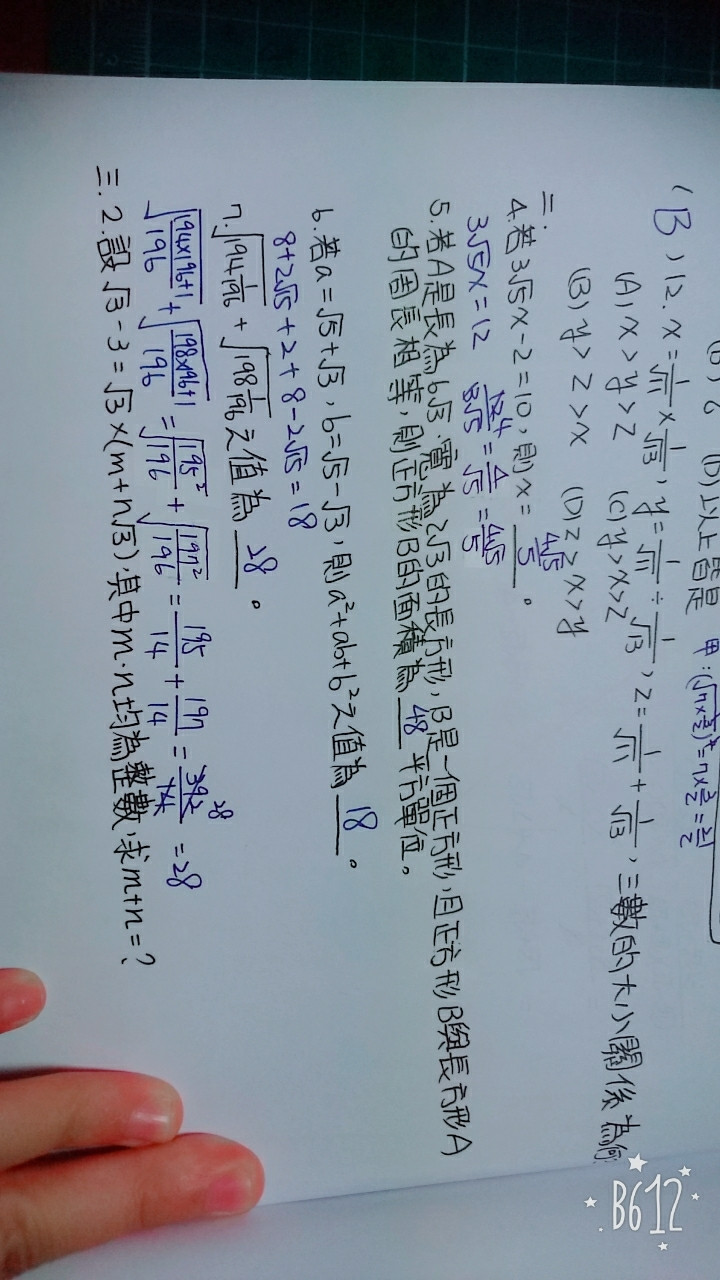 (D)以上皆是
(B)12. x=1/√11×1/√13, y=1/√11÷1/√13, z=1/√11+1/√13, 三數的大小關係為何
(A) x>y>z (C) y>x>z
(B) y>z>x (D) z>x>y
二.
4.若3√5x-2=10,則x=4√5/5。
3√5x=12 12 4/3√5=4/√5=4√5/5
5.若A是長為6√3、寬為2√3的長方形,B是一個正方形,且正方形B與長方形A
的周長相等,則正方形B的面積為48平方單位。
6.若a=√5+√3,b=√5-√3,則a²+ab+b²之值為18。
8+2√15+2+8-2√15=18
7.√194 1/196+√198 1/196之值為28。
√(194×196+1)/196+√(198×196+1)/196=√195²/196+√197²/196=195/14+197/14=392/14 28=28
三.2.設√3-3=√3×(m+n√3),其中m、n均為整數,求m+n=?
B612